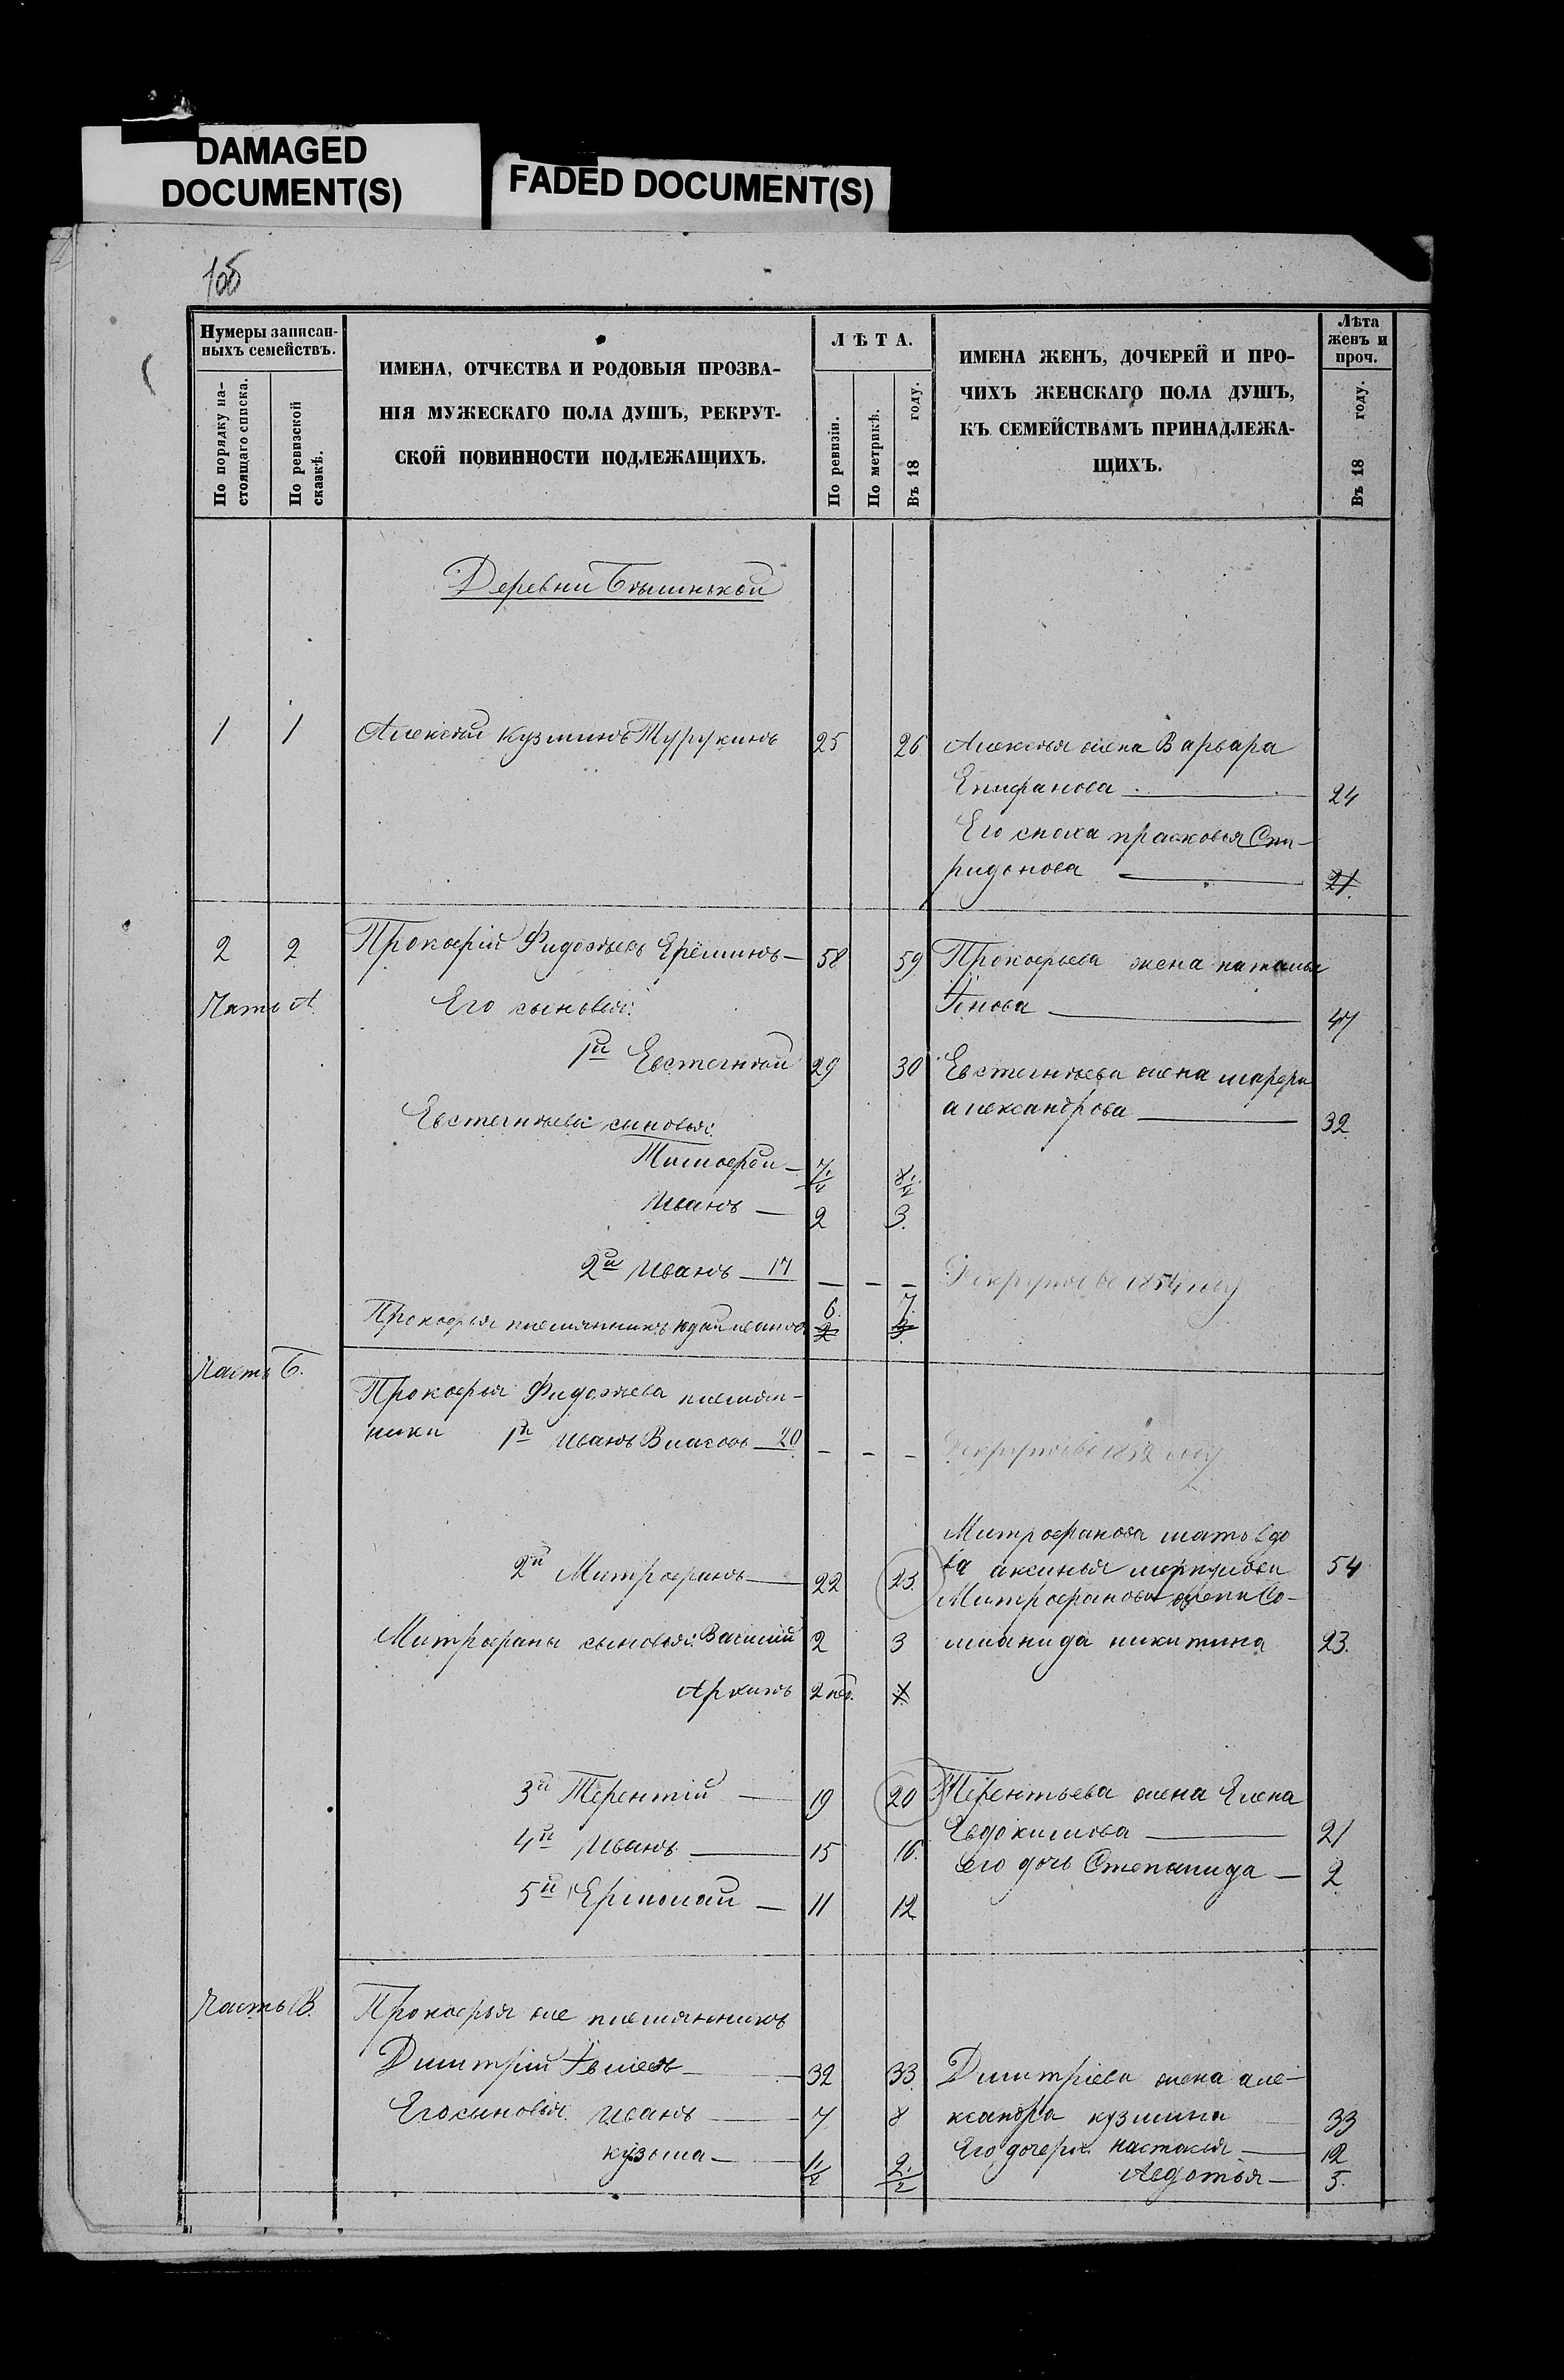 DAMAGED
DOCUMENT(S)
FADED DOCUMENT(S)
Нумеры записан-
ныхъ семействъ.
По порядку на-
стоящаго списка.
По ревизской
сказкѣ.
ИМЕНА, ОТЧЕСТВА И РОДОВЫЯ ПРОЗВА-
НІЯ МУЖЕСКАГО ПОЛА ДУШЪ, РЕКРУТ-
СКОЙ ПОВИННОСТИ ПОДЛЕЖАЩИХЪ.
ЛѢТА.
По ревизіи.
По метрикѣ.
Въ 18 году.
ИМЕНА ЖЕНЪ, ДОЧЕРЕЙ И ПРО-
ЧИХЪ ЖЕНСКАГО ПОЛА ДУШЪ,
КЪ СЕМЕЙСТВАМЪ ПРИНАДЛЕЖА-
ЩИХЪ.
Лѣта
женъ и
проч.
Въ 18 году.
Деревни
1 1 Алексѣй Кузминъ Турукинъ 25 26 Алексѣя жена Варвара
Епифанова 24
Его сноха прасковья Спи-
ридонова 21.
2 2 Прокофій Ѳидотѣевъ Ерёминъ 58 59 Прокофьева жена наталья
Часть А. Его сыновья: 47
1й Евстегнѣй 29 30 Евстегнѣева жена марфа
александрова 32
Евстегнѣевы сыновья:
Тимофей 7½ 8½
Иванъ 2 3.
2й Иванъ 17 — — — Рекрутъ въ 1854 году
Прокофья племянникъ 6. 7.
2 3.
Часть Б.
Прокофья Ѳидотѣева племян-
ники 1й Иванъ Власовъ 20 — — — Рекрутъ въ 1852 году
Митрофанова мать вдо
2й Митрофанъ 22 23. ва аксинья 54
Митрофанова жена Со-
Митрофаны сыновья: Василий 2 3 ломанида никитина 23.
Архипъ 2 нед.
3й Терентій 19 20 Терентьева жена Елена
Евдокимова 21
4й Иванъ 15 16. его дочь Степанида 2
5й Ермолай 11 12
Часть В. Прокофья же племянникъ
Димитрій 32 33. Димитріева жена але-
Его сыновья: Иванъ 7 8 ксандра кузмина 33
Его дочери: настасья 12
кузьма 1½ 2½ Авдотья 5.